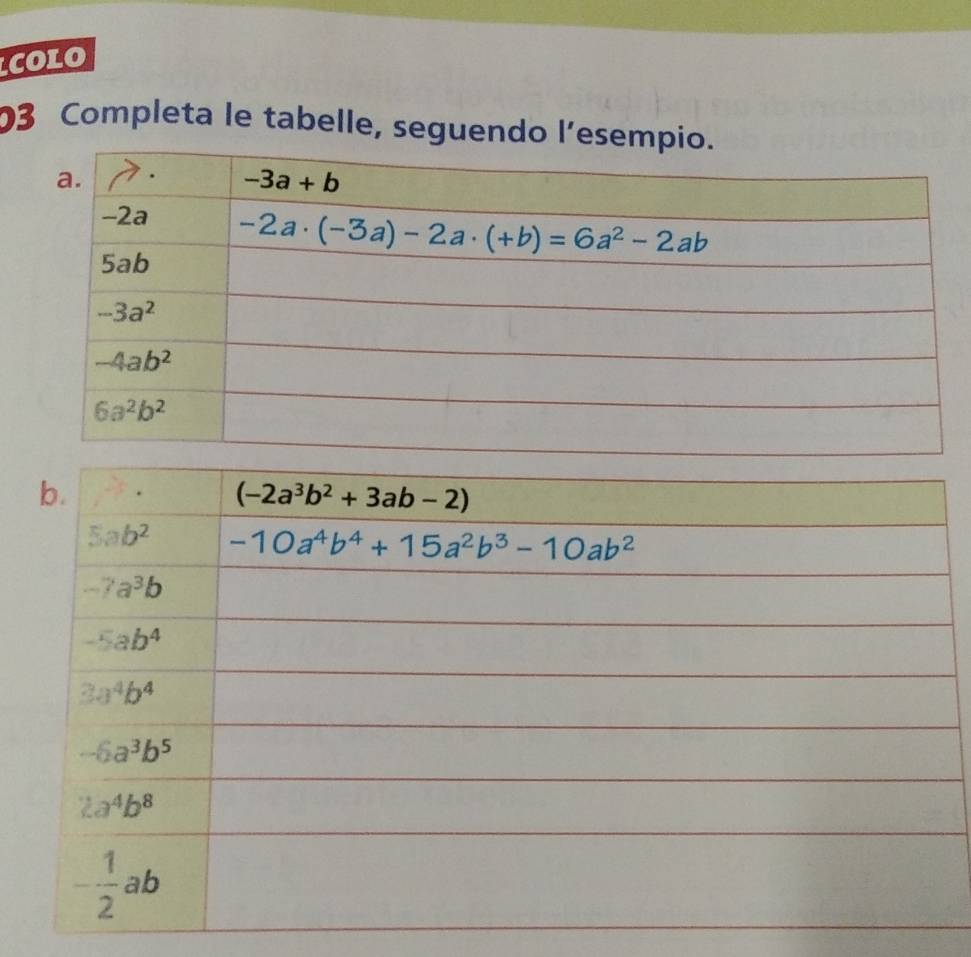 COLO
03 Completa le tabelle, seguendo l'esempio.
a. · −3a + b
−2a −2a · (−3a) − 2a · (+b) = 6a² − 2ab
5ab
−3a²
−4ab²
6a²b²
b. · (−2a³b² + 3ab − 2)
5ab² −10a⁴b⁴ + 15a²b³ − 10ab²
−7a³b
−5ab⁴
3a⁴b⁴
−6a³b⁵
2a⁴b⁸
−1/2 ab